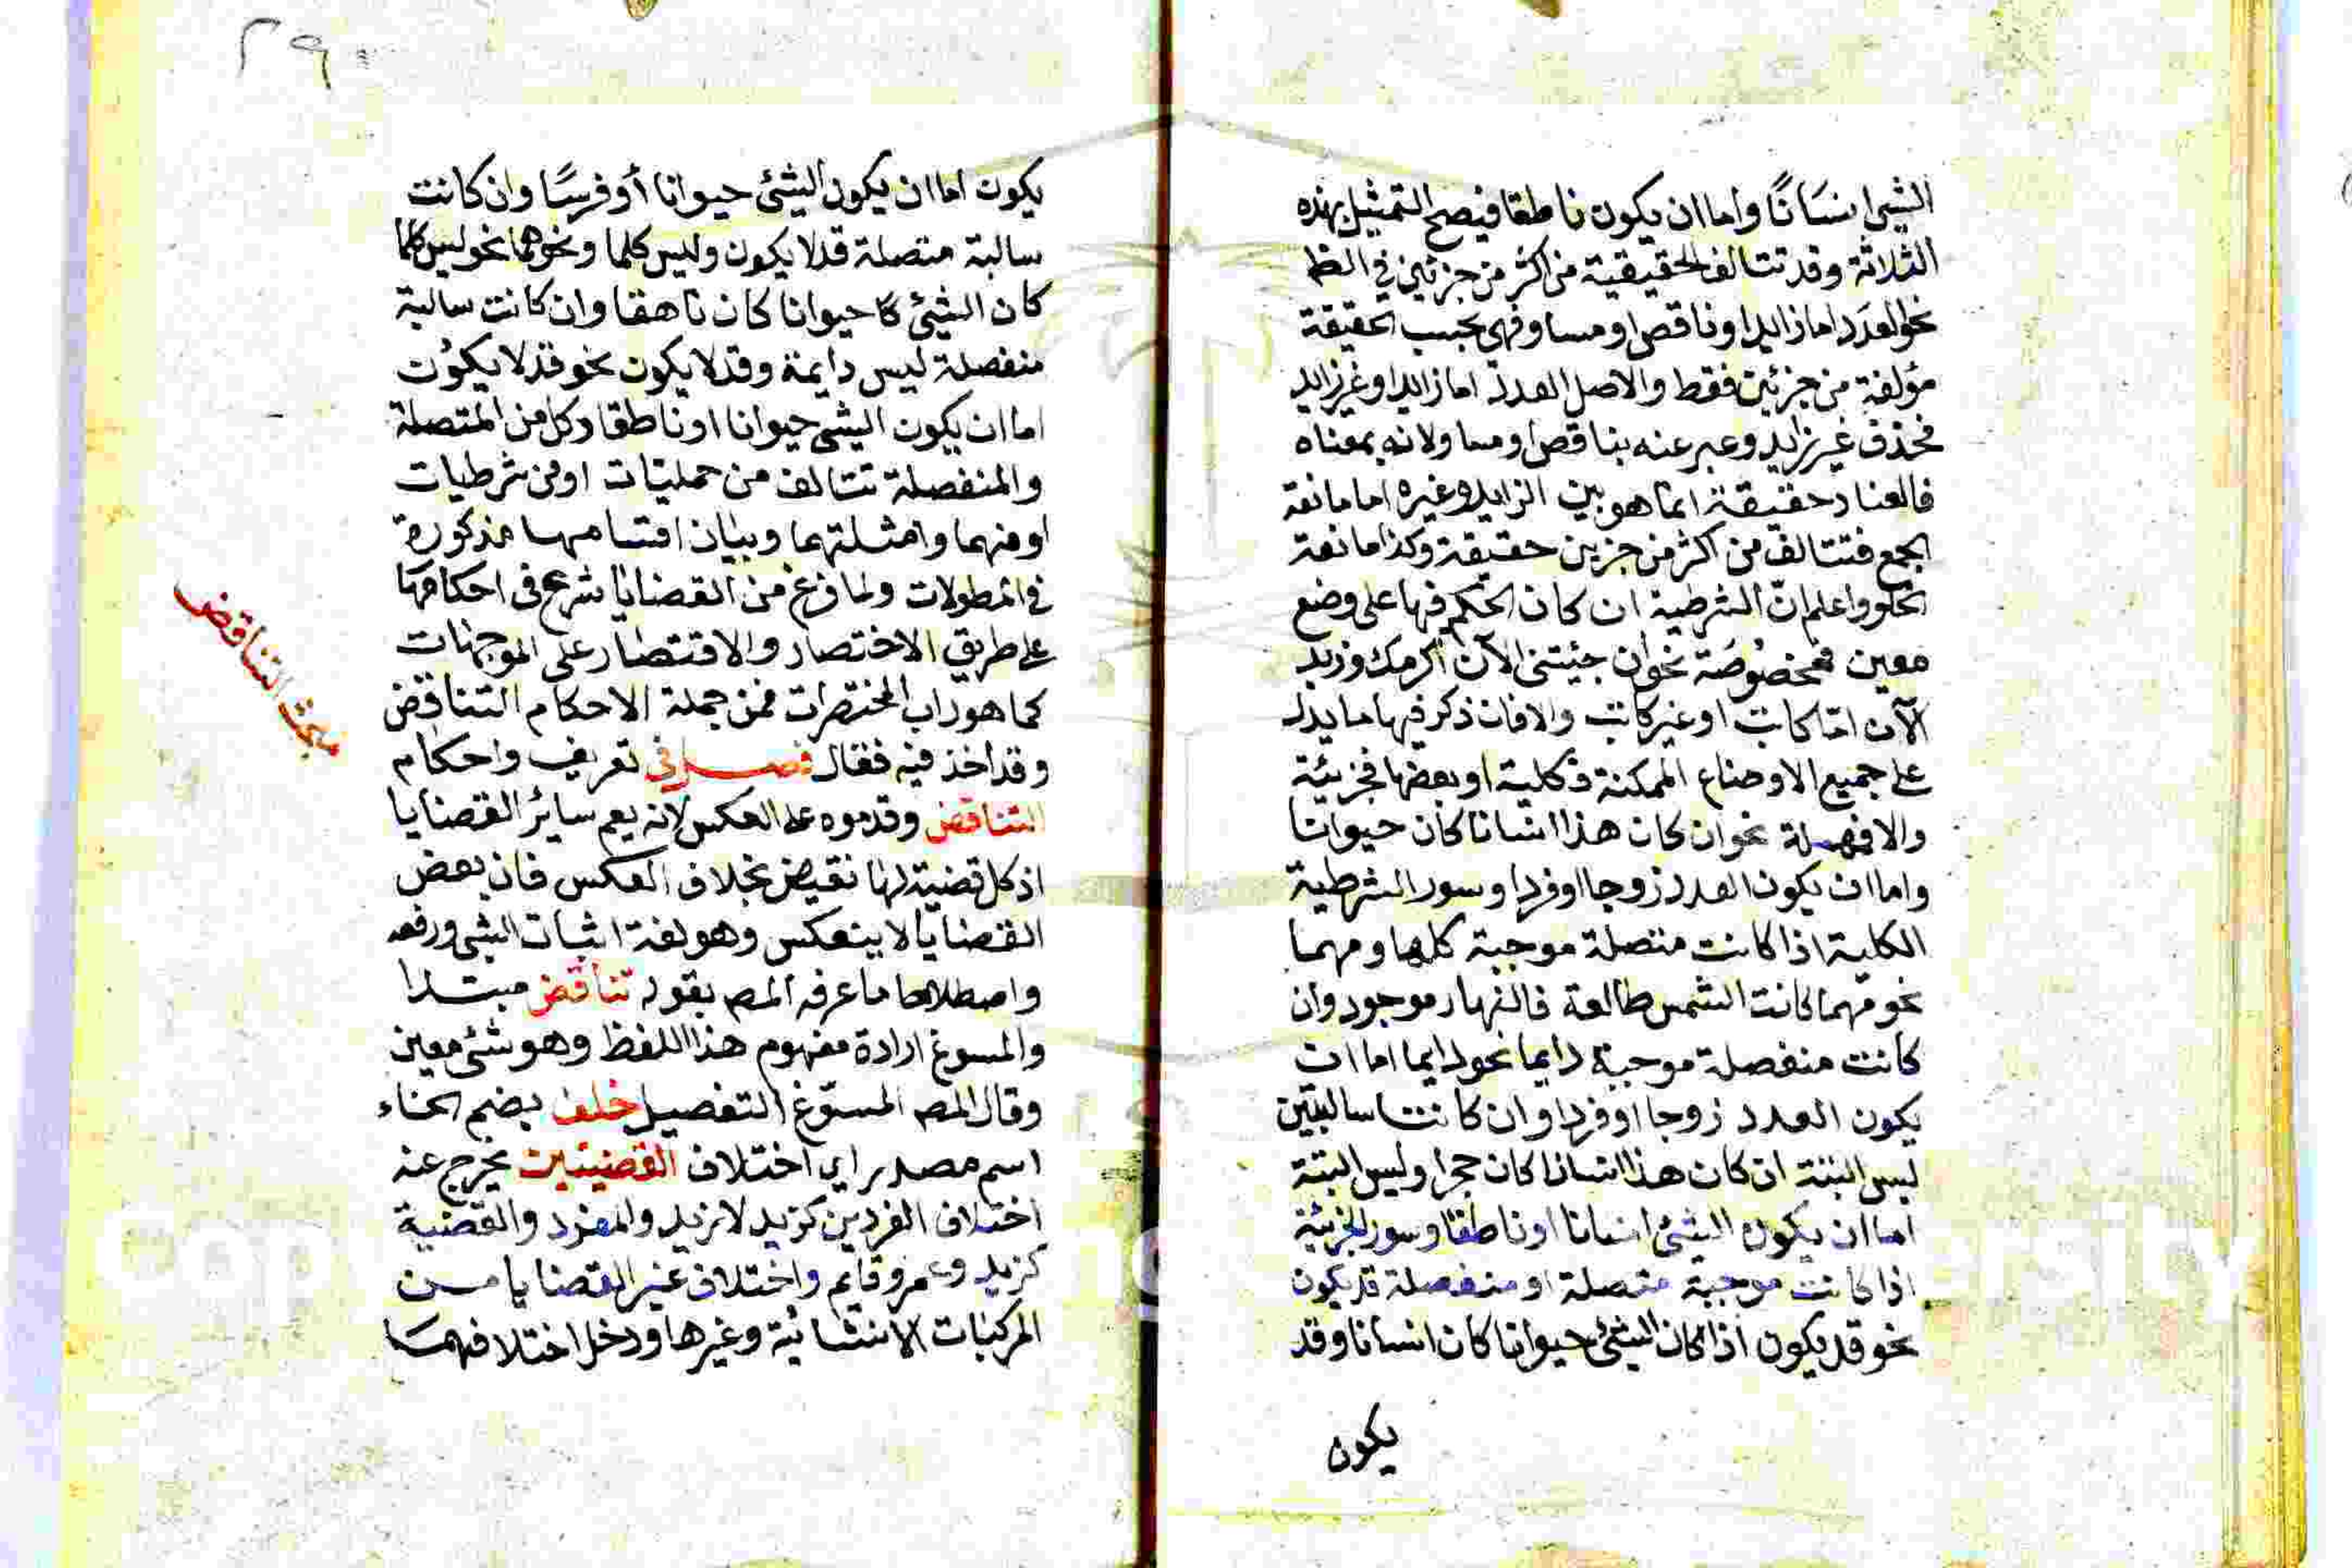 الشئ انسَانًا واما ان يكون ناطقا فيصح التمثيل بهذه
الثلاثة وقد تتالف الحقيقية من اكثر من جزئين في الظ
نحو العدَد اما زايد او ناقص او مساو فهي بحسب الحقيقة
مؤلفة من جزئين فقط والاصل العدد اما زايد او غير زايد
فحذف غير زايد وعبر عنه بناقص او مساو لانه بمعناه
فالعناد حقيقة انما هو بين الزايد وغيره اما مانعة
الجمع فتتالف من اكثر من جزين حقيقة وكذا مانعة
الخلو واعلم انّ الشرطية ان كان الحكم فيها على وضع
معين فمخصُوصَة نحو ان جئيتنى الآن اكرمك وزيد
الآن امّا كاتب او غير كاتب والا فان ذكر فيها ما يدل
على جميع الاوضاع الممكنة فكلية او بعضها فجزيئة
والا فمهملة نحو ان كان هذا انسانا كان حيوانا
واما ان يكون العدد زوجا او فردا وسور الشرطية
الكلية اذا كانت متصلة موجبة كلما ومهما
نحو مهما كانت الشمس طالعة فالنهار موجود وان
كانت منفصلة موجبة دايما نحو دايما اما ان
يكون العدد زوجا او فردا وان كانتا سالبتين
ليس البتة ان كان هذا انسانا كان حجرا وليس البتة
اما ان يكون الشئ انسانا او ناطقا وسور الجزئية
اذا كانت موجبة متصلة او منفصلة قد يكون
نحو قد يكون اذا كان الشئ حيوانا كان انسانا وقد
يكون
٢٩
يكون اما ان يكون الشئ حيوانا أو فرسًا وان كانت
سالبة متصلة قد لا يكون وليس كلما ونحوهما نحو ليس كلما
كان الشئ حيوانا كان ناهقا وان كانت سالبة
منفصلة ليس دايمة وقد لا يكون نحو قد لا يكون
اما ان يكون الشئ حيوانا او ناطقا وكل من المتصلة
والمنفصلة تتالف من حمليات او من شرطيات
او منهما وامثلتهما وبيان اقسامها مذكورة
في المطولات ولما فرغ من القضايا شرع فى احكامهَا
على طريق الاختصار والاقتصار على الموجهات
كما هو داب المختصرات فمن جملة الاحكام التناقض
وقد اخذ فيه فقال فصل في تعريف واحكام
مبحث التناقض
التناقض وقدموه على العكس لانه يعم سائر القضايا
اذ كل قضية لها نقيض بخلاف العكس فان بعض
القضايا لا ينعكس وهو لغة اثبات الشئ ورفعه
واصطلاحا ما عرفه المص بقوله تناقض مبتدا
والمسوغ ارادة مفهوم هذا اللفظ وهو شئ معين
وقال المص المسوّغ التفصيل خلف بضم الخاء
اسم مصدر اي اختلاف القضيتين يخرج عنه
اختلاف الفردين كزيد لا زيد والمفرد والقضية
كزيد وعمرو قايم واختلاف غير القضايا من
المركبات الانشائية وغيرها ودخل اختلافهمَا